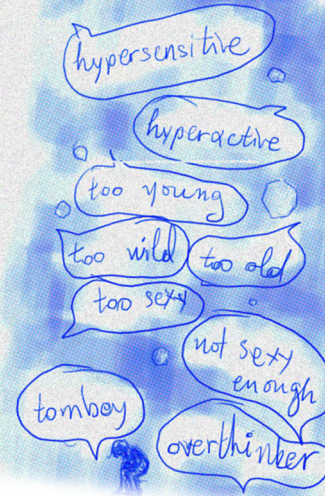 hypersensitive
hyperactive
too young
too wild
too old
too sexy
not sexy
enough
tomboy
overthinker